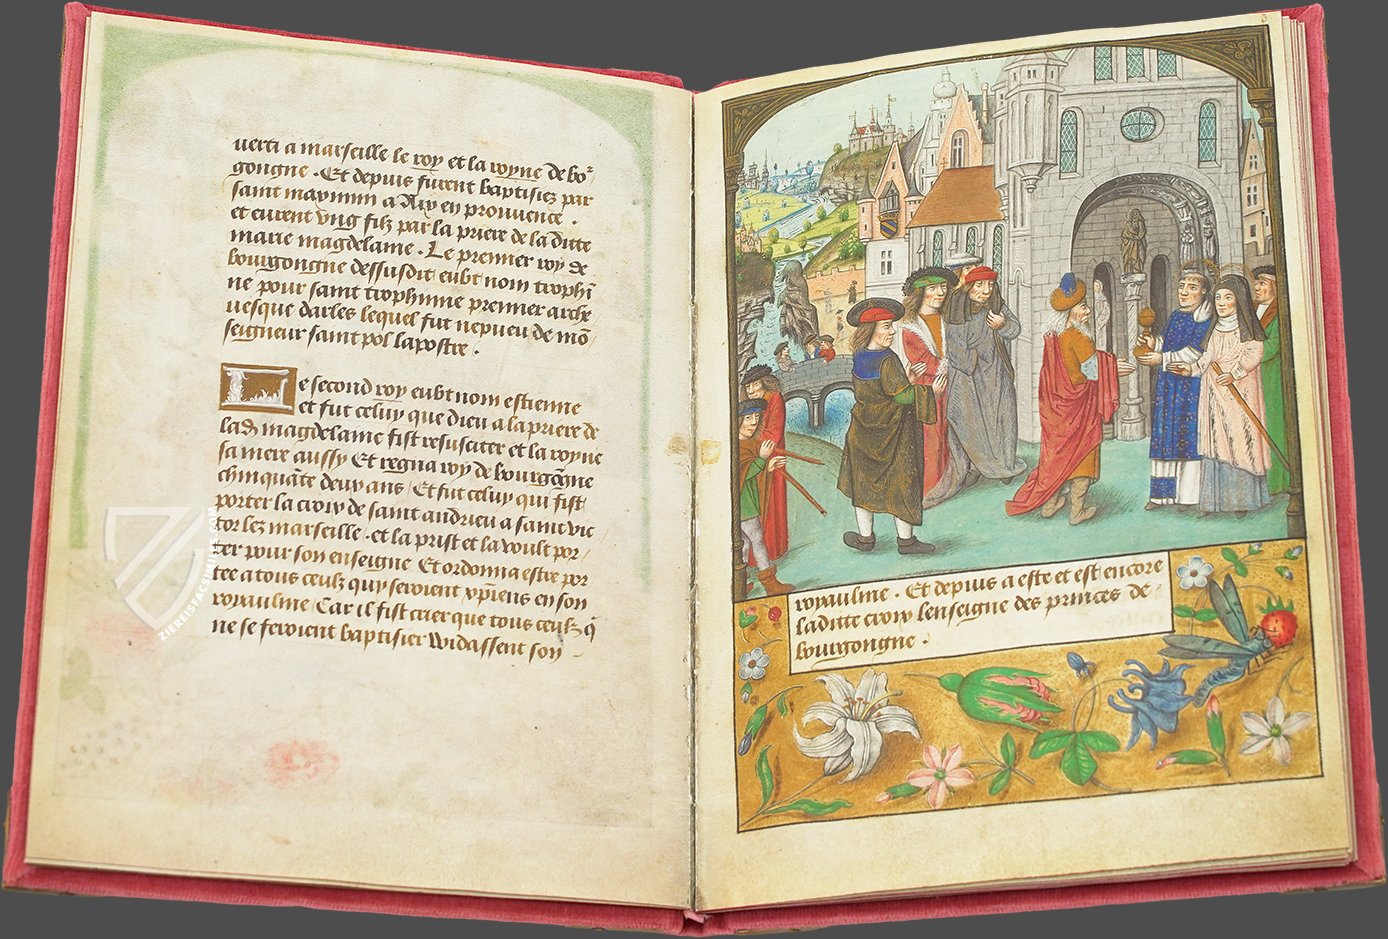 verti a marseille le roy et la royne de bor
gongne . Et depuis furent baptisiez par
saint maximin a Aix en prouuence .
et eurent vng filz par la priere de la ditte
marie magdelaine . Le premier roy de
bourgongne dessusdit eubt nom trophi
ne pour saint trophinne premier arche
uesque darles lequel fut nepueu de mō
seigneur saint pol lapostre .
Le second roy eubt nom estienne
et fut celuy que dieu a la priere de
lad magdelaine fist resusciter et la royne
sa mere aussy Et regna roy de bourgōgne
chinquāte deux ans / Et fut celuy qui fist
porter la croix de saint andrieu a saint vic
tor lez marseille . et la prist et la voult por /
ter pour son enseigne Et ordonna estre por
tee a tous ceulz quy seroient xpiens en son
royaulme / Car il fist crier que tous ceulz q̄
ne se feroient baptisier widassent son
royaulme . Et depuis a este et est encore
laditte croix lenseigne des princes de
bourgongne .
ZIEREISFACSIMILES.COM